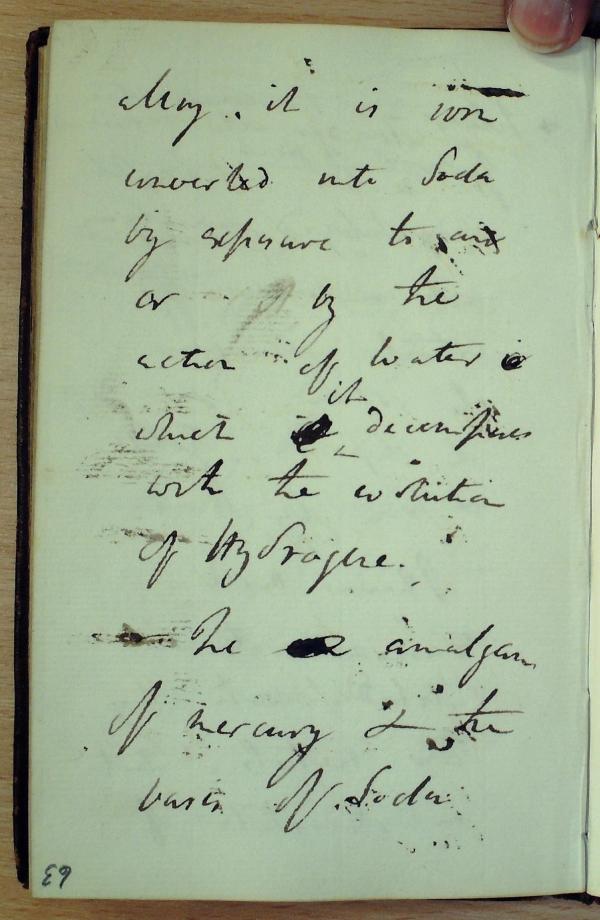 alloy. it is soon
converted into Soda
by exposure to air
or by the
action of water
which it decomposes
with the evolution
of Hydrogene.
The amalgam
of mercury & the
basis of Soda
63